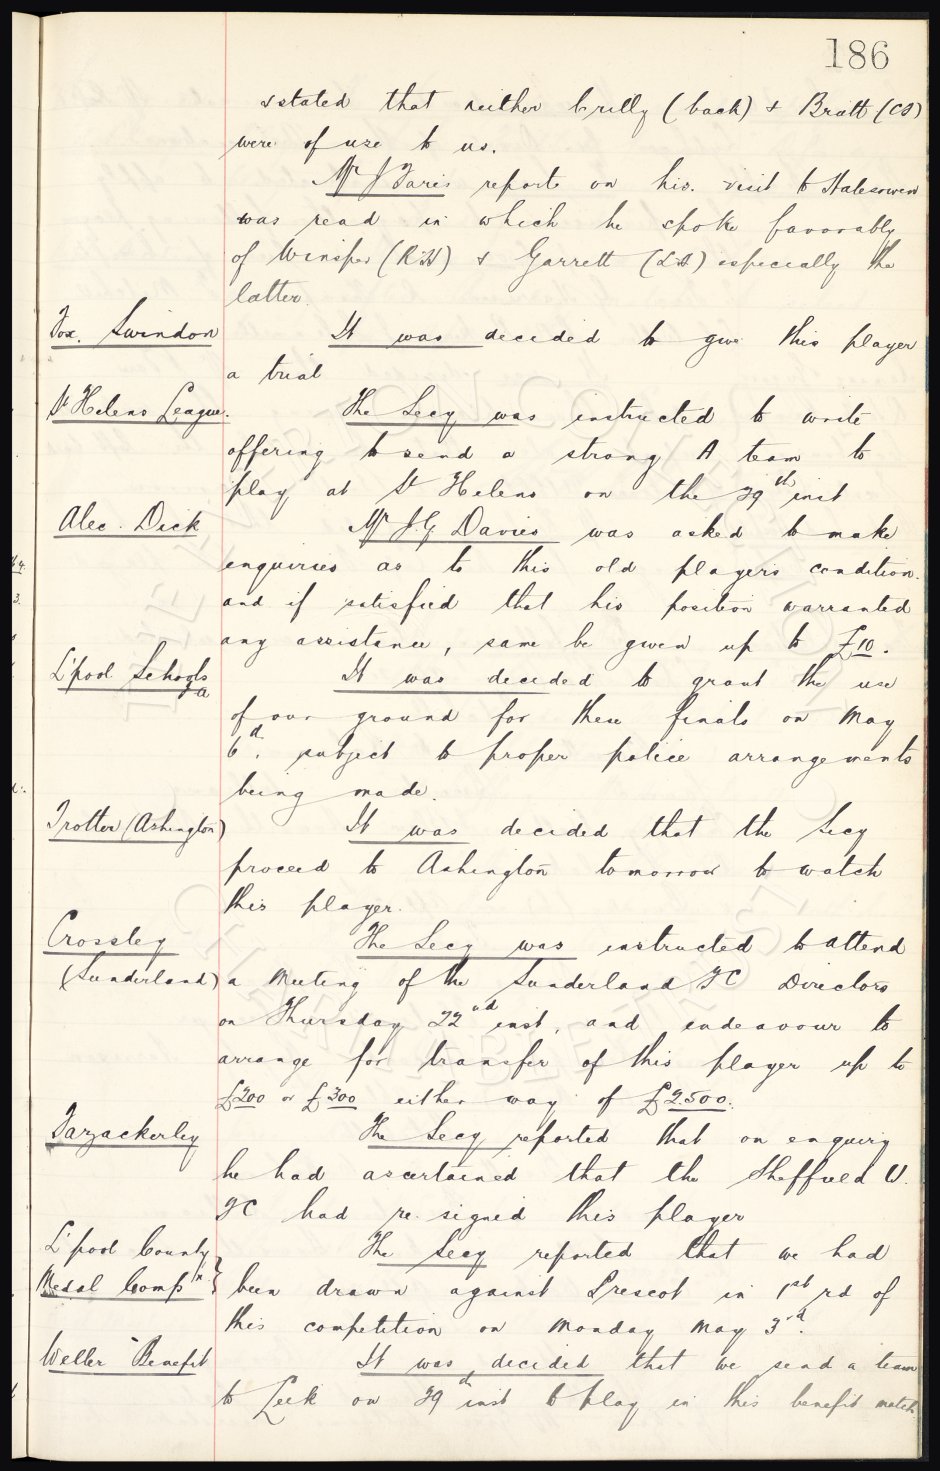 186
& stated that neither Crilly (back) & Bratt (CH)
were of use to us.
Mr J Faris report on his visit to Halesowen
was read in which he spoke favorably
of Winsper (RH) & Garrett (LH) especially the
latter.
Fox. Swindon It was decided to give this player
a trial
St Helens League. The Secy was instructed to write
offering to send a strong A team to
play at St Helens on the 29th inst
Alec. Dick Mr J.G Davies was asked to make
enquiries as to this old players condition.
and if satisfied that his position warranted
any assistance, same be given up to £10.
L'pool Schools It was decided to grant the use
of our ground for these finals on May
6d. subject to proper police arrangements
being made.
Trotter (Ashington) It was decided that the Secy
proceed to Ashington tomorrow to watch
this player.
Crossley The Secy was instructed to attend
(Sunderland) a Meeting of the Sunderland FC Directors
on Thursday 22nd inst, and endeavour to
arrange for transfer of this player up to
£200 or £300 either way of £2500.
Tarzackerley The Secy reported that on enquiry
he had ascertained that the Sheffield U.
FC had re-signed this player
L'pool County The Secy reported that we had
Medal Compn been drawn against Prescot in 1st rd of
this competition on Monday May 3rd.
Weller Benefit It was decided that we send a team
to Leek on 29th inst to play in this benefit match